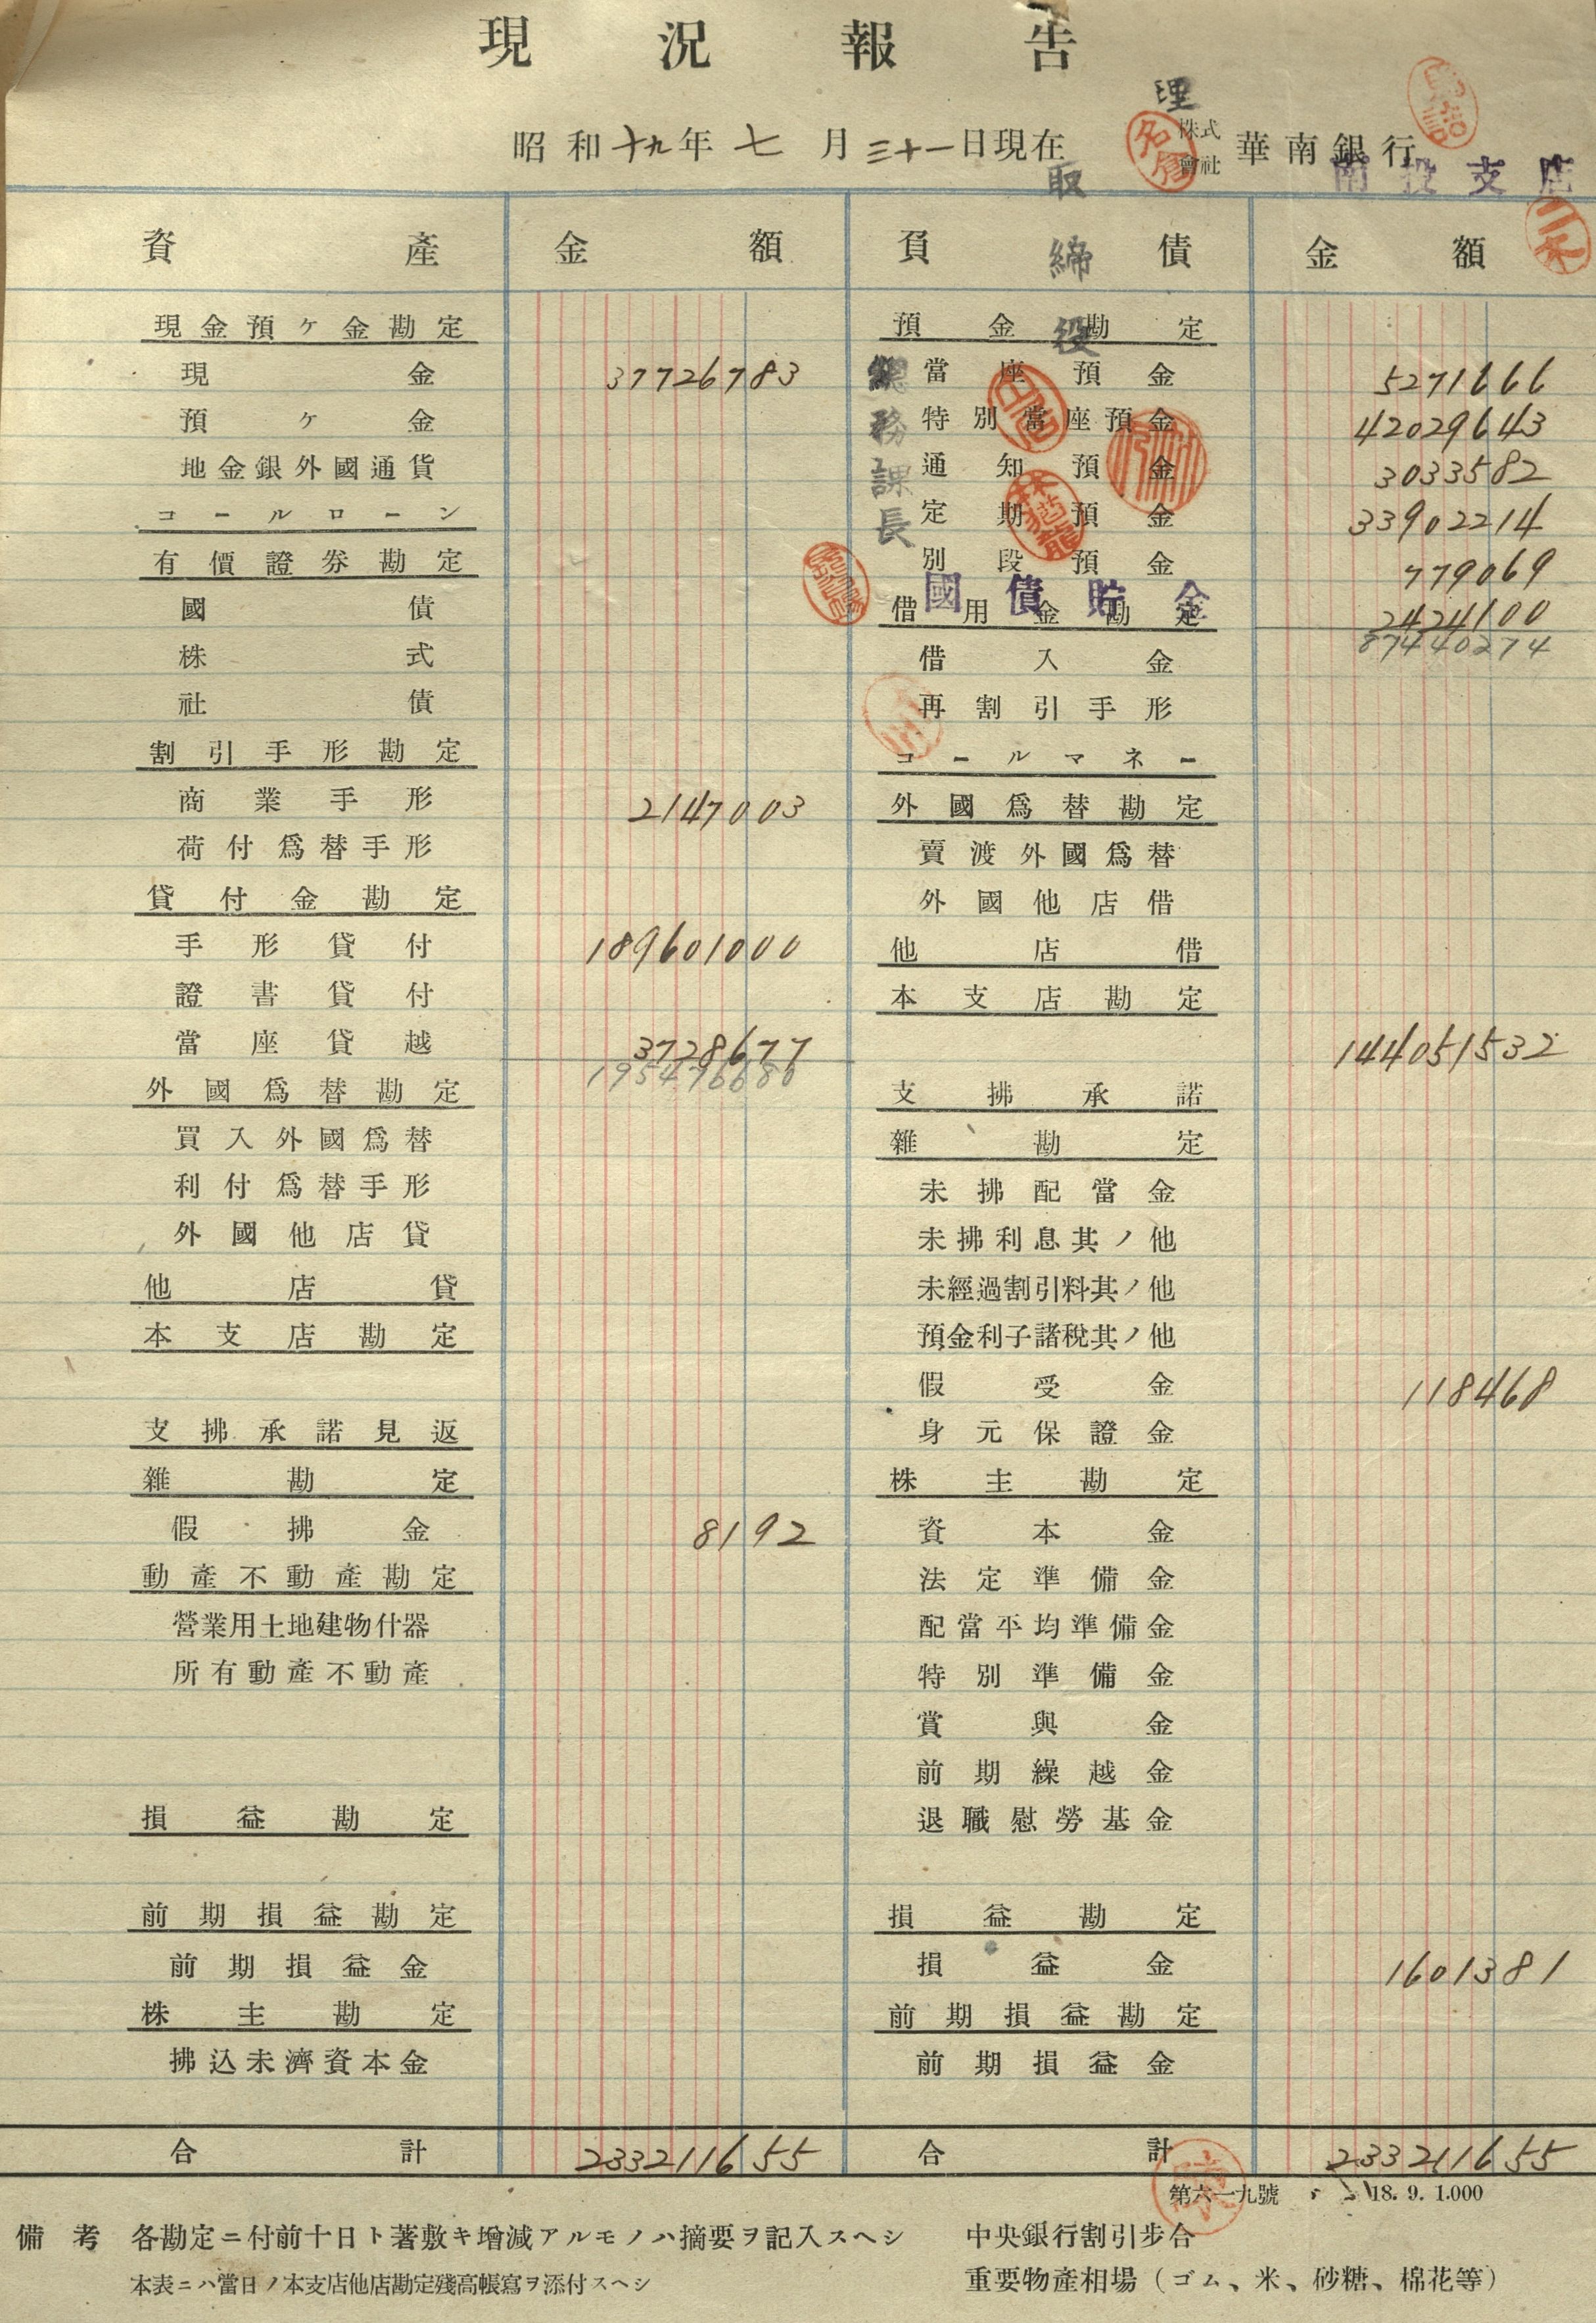 現況報告
昭和十九年七月三十一日現在 株式會社 華南銀行 南投支店
理
取締役
總務課長
資產 金額 負債 金額
現金預ケ金勘定 預金勘定
現金 37726783 當座預金 5271666
預ケ金 特別當座預金 42029643
地金銀外國通貨 通知預金 3033582
コールローン 定期預金 33902214
有價證券勘定 別段預金 779069
國債貯金 2424100
國債 借用金勘定 87440274
株式 借入金
社債 再割引手形
割引手形勘定 コールマネー
商業手形 2147003 外國爲替勘定
荷付爲替手形 賣渡外國爲替
貸付金勘定 外國他店借
手形貸付 189601000 他店借
證書貸付 本支店勘定
當座貸越 3728677 144051532
195476680
外國爲替勘定 支拂承諾
買入外國爲替 雜勘定
利付爲替手形 未拂配當金
外國他店貸 未拂利息其ノ他
他店貸 未經過割引料其ノ他
本支店勘定 預金利子諸稅其ノ他
假受金 118468
支拂承諾見返 身元保證金
雜勘定 株主勘定
假拂金 8192 資本金
動產不動產勘定 法定準備金
營業用土地建物什器 配當平均準備金
所有動產不動產 特別準備金
賞與金
前期繰越金
損益勘定 退職慰勞基金
前期損益勘定 損益勘定
前期損益金 損益金 1601381
株主勘定 前期損益勘定
拂込未濟資本金 前期損益金
合計 233211655 合計 233211655
第六一九號 18. 9. 1.000
備考 各勘定ニ付前十日ト著敷キ增減アルモノハ摘要ヲ記入スヘシ 中央銀行割引步合
本表ニハ當日ノ本支店他店勘定殘高帳寫ヲ添付スヘシ 重要物產相場（ゴム、米、砂糖、棉花等）